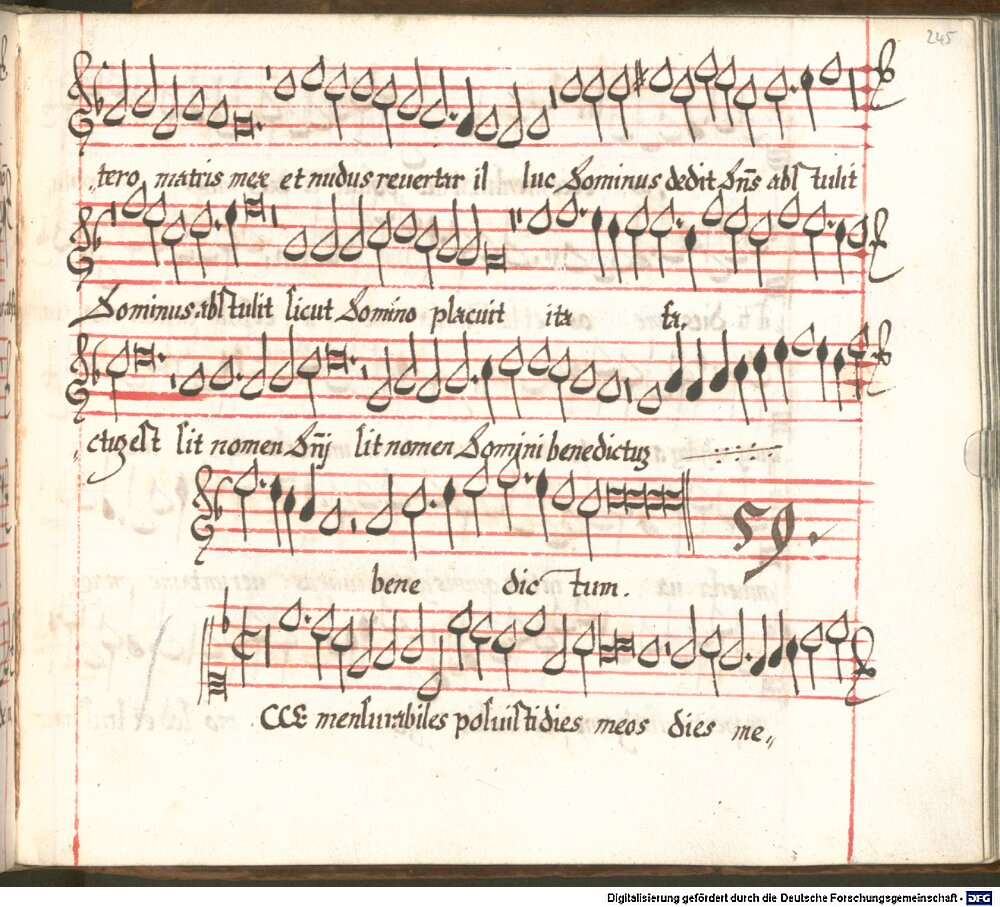 245
„tero matris meæ et nudus reuertar il luc Dominus dedit Dñs abstulit
Dominus abstulit sicut Domino placuit ita fa,
„ctuʒ est sit nomen Dñj sit nomen Domini benedictuʒ
59.
bene dictum.
CCE mensurabiles posuisti dies meos dies me„
Digitalisierung gefördert durch die Deutsche Forschungsgemeinschaft - DFG